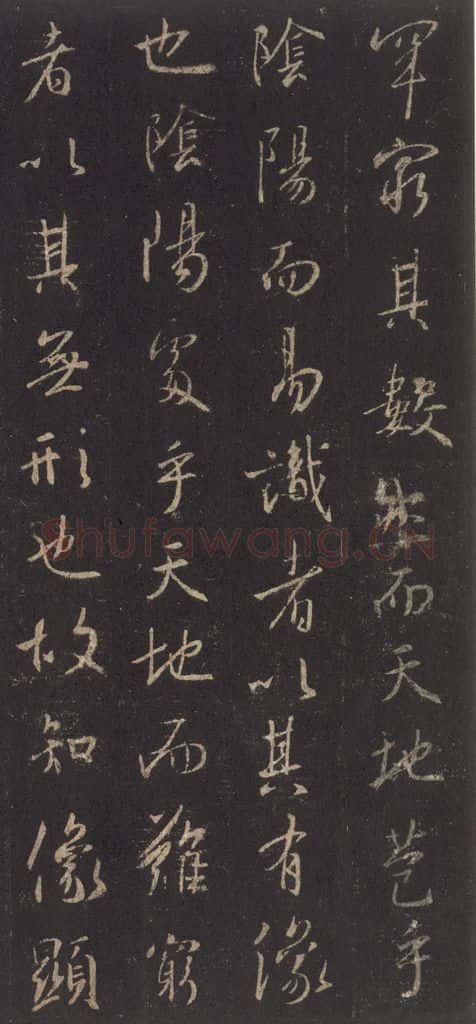 罕窮其數然而天地苞乎
陰陽而易識者以其有像
也陰陽處乎天地而難窮
者以其無形也故知像顯
Shufawang.CN